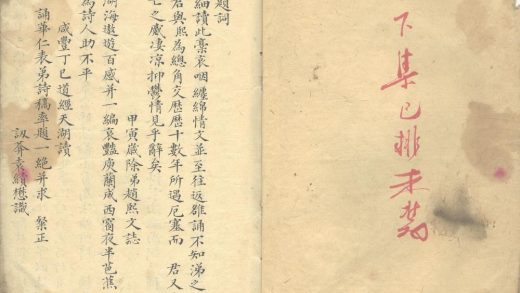 下集已排未
題詞
細讀此稾哀咽纏綿情文並至往返雒誦不知涕之
君與熙為總角交歷歷十數年所遇厄塞而 君又
之戚淒涼抑鬱情見乎辭矣
甲寅歲除弟趙熙文誌
湖海遨遊百感并一編哀豔庾蘭成西窗夜半芭蕉
為詩人助不平
咸豐丁巳道經天湖讀
誦華仁表弟詩稿率題一絕并求 槃正
訒葊袁績懋識